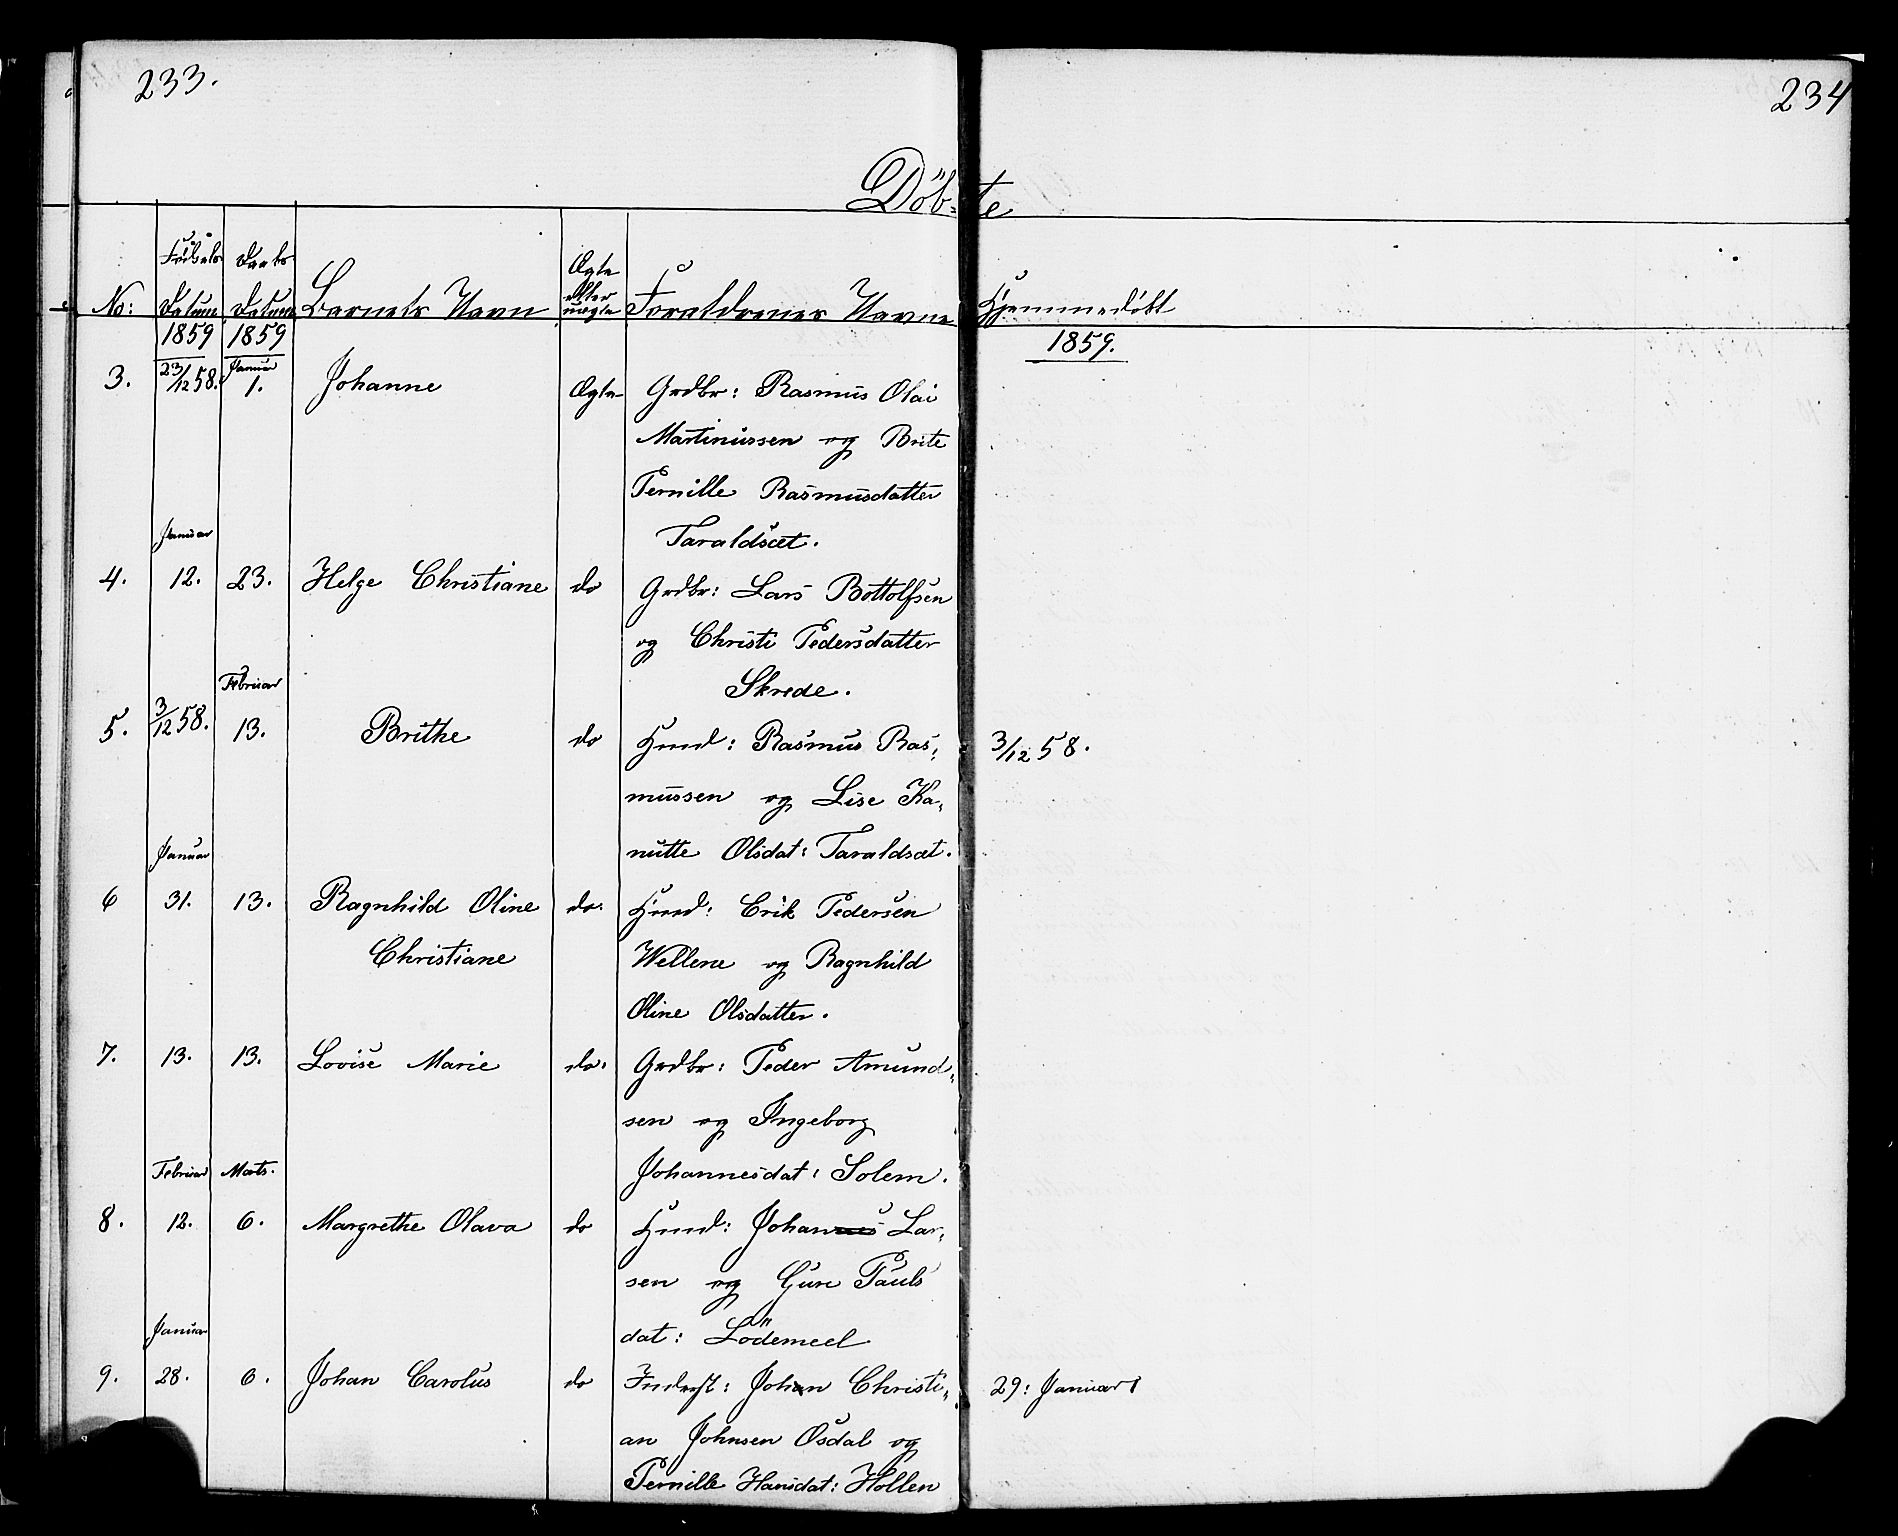 233.
234
Döb-te
No:
Födsels Datum
Daabs Datum
Barnets Navn
Ægte eller uægte
Forældrenes Navne
Hjemmedöbt
1859
1859
1859.
3. 23/12 58. Januar 1. Johanne Ægte Grdbr: Rasmus Olai
Martinussen og Brite
Pernille Rasmusdatter
Taraldsæt.
Januar
4. 12. 23. Helge Christiane do Grdbr: Lars Bottolfsen
og Christi Pedersdatter
Skrede.
Februar
5. 3/12 58. 13. Brithe do Husmd: Rasmus Ras- 3/12 58.
mussen og Lise Ka-
nutte Olsdat: Taraldsæt.
Januar
6 31. 13. Ragnhild Oline do. Husmd: Erik Pedersen
Christiane Wellene og Ragnhild
Oline Olsdatter.
7. 13. 13. Lovise Marie do. Grdbr: Peder Amund-
sen og Ingeborg
Johannesdat: Solem.
Februar Marts.
8. 12. 6. Margrethe Olava do Husmd: Johannes Lar-
sen og Guri Pauls
dat: Lödemeel
Januar
9. 28. 6. Johan Carolus do Inderst: Johan Christi- 29: Januar
an Johnsen Osdal og
Pernille Hansdat: Hollen